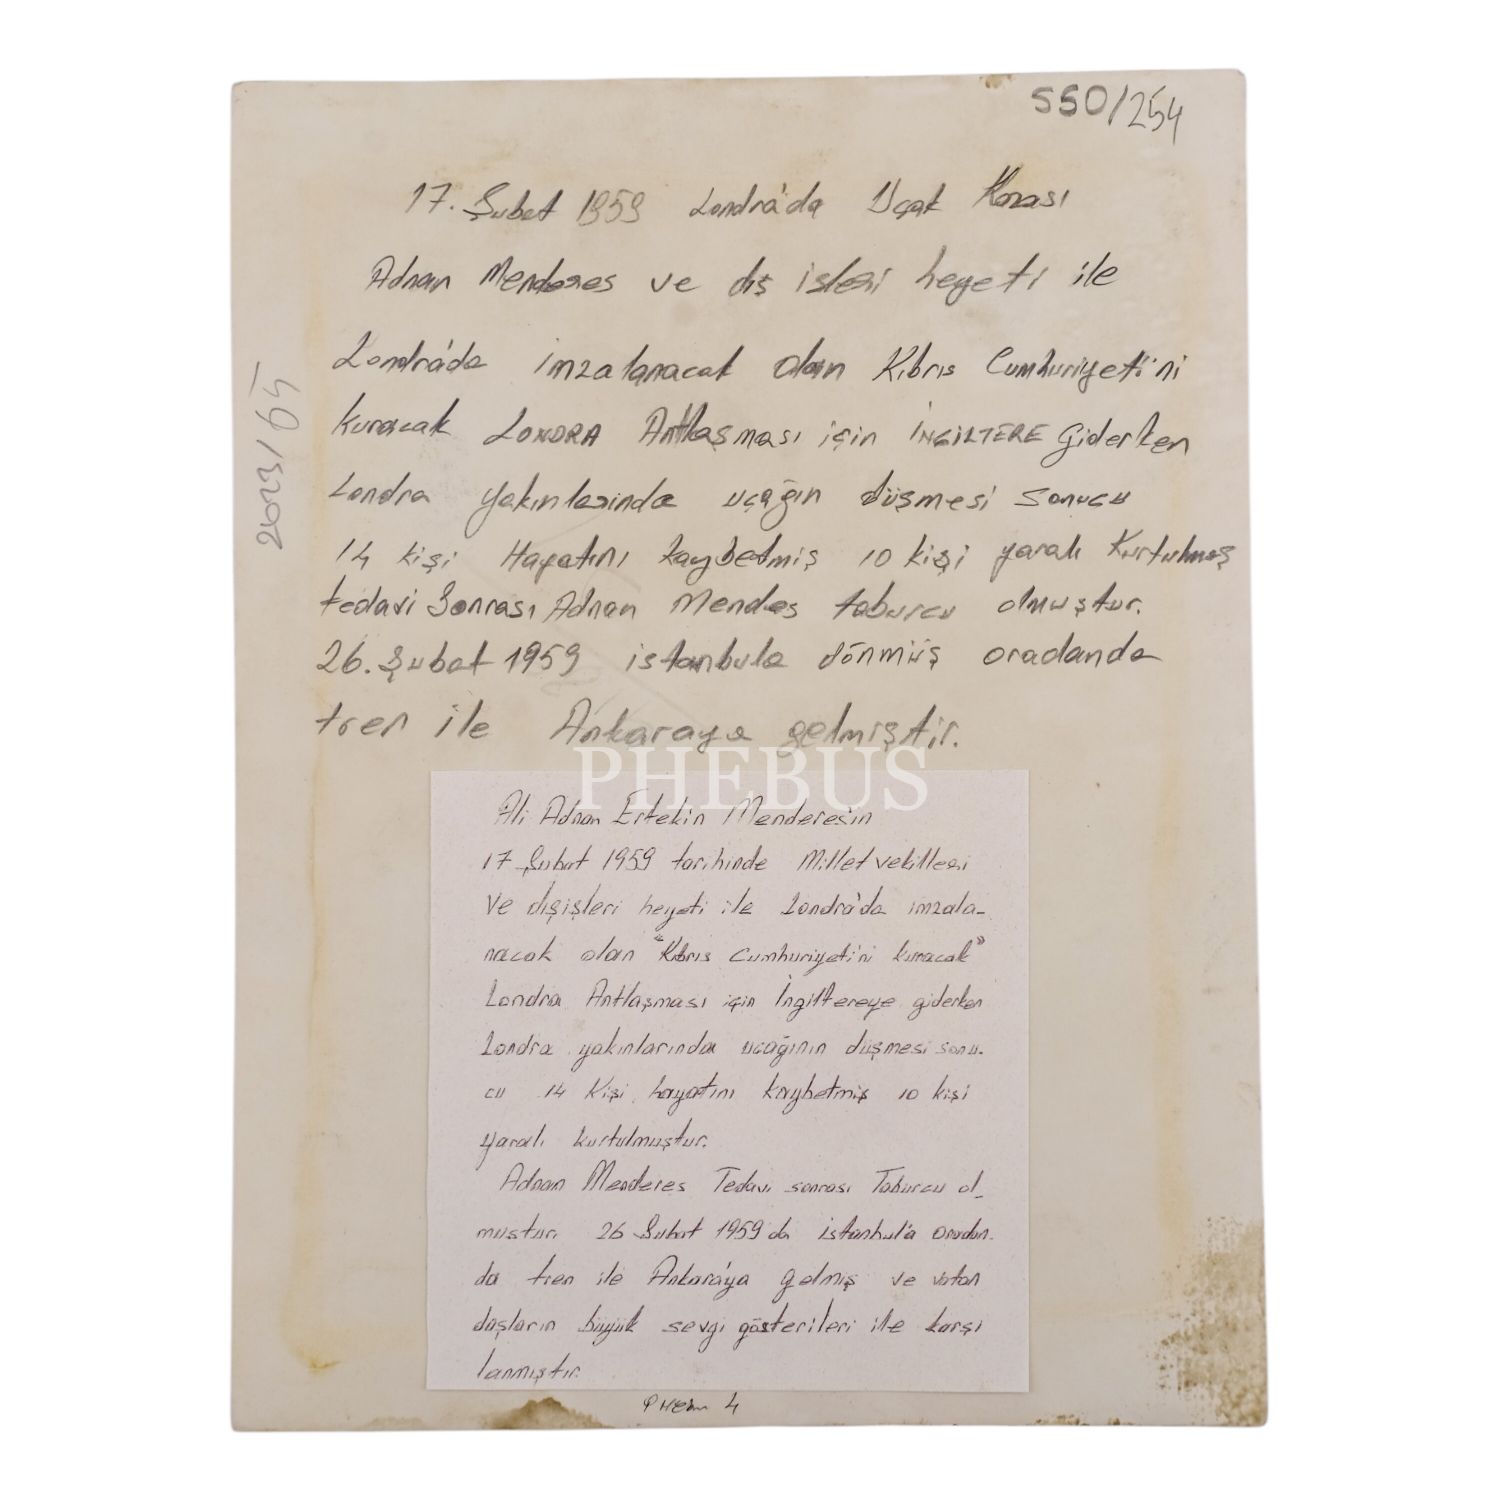 550/254
17. Şubat 1959 Londra'da Uçak Kazası
Adnan Menderes ve dış işleri heyeti ile
Londra'da imzalanacak olan Kıbrıs Cumhuriyeti'ni
kuracak LONDRA Antlaşması için İNGİLTERE Giderken
Londra yakınlarında uçağın düşmesi sonucu
14 kişi Hayatını kaybetmiş 10 kişi yaralı Kurtulmuş
tedavi Sonrası Adnan Mendes taburcu olmuştur.
26. Şubat 1959 istanbula dönmüş oradanda
tren ile Ankaraya gelmiştir.
2023/65
PHEBUS
Ali Adnan Ertekin Menderes'in
17 Şubat 1959 tarihinde Milletvekilleri
ve dışişleri heyeti ile Londra'da imzala-
nacak olan "Kıbrıs Cumhuriyeti'ni kuracak"
Londra Antlaşması için İngiltereye giderken
Londra yakınlarında uçağının düşmesi sonu-
cu 14 Kişi hayatını kaybetmiş 10 kişi
yaralı kurtulmuştur.
Adnan Menderes Tedavi sonrası Taburcu ol-
muştur. 26 Şubat 1959 da istanbul'a oradan-
da tren ile Ankara'ya gelmiş ve vatan
daşların büyük sevgi gösterileri ile karşı
lanmıştır.
4